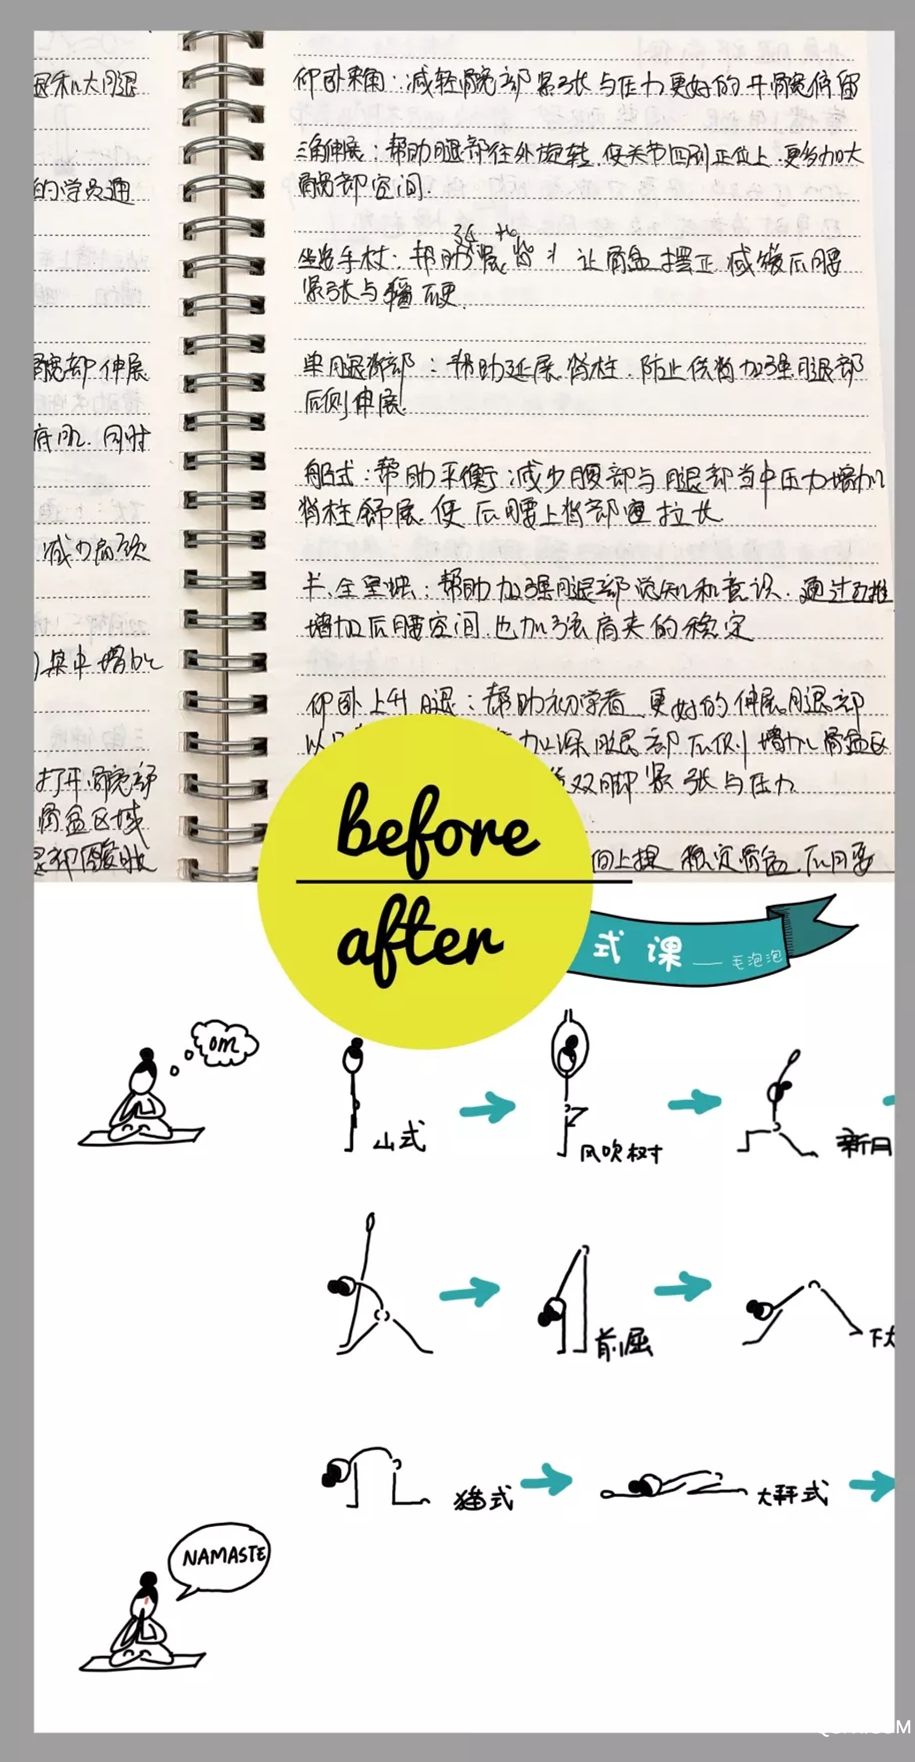 退和大腿
的学员通
髋部伸展
底肌.同时
减少肩颈
集中增加
打开髋部
骨盆区域
仰卧束角:减轻髋部紧张与压力更好的开髋停留
三角伸展:帮助腿部往外旋转.使关节回到正位上.更多加大
髋部空间.
坐姿手杖:帮助 让骨盆摆正.减缓后腰
紧张与僵硬.
单腿背部:帮助延展脊柱.防止供背加强腿部
后侧伸展.
船式:帮助平衡;减少腹部与腿部当中压力增加
脊柱舒展.使后腰上背部 拉长
半.全 :帮助加强腿部觉知和意识.通过 推
增加后腰空间.也加强肩夹的稳定
仰卧上升腿:帮助初学者.更好的伸展腿部
加深腿部后侧.增加骨盆区
双脚紧张与压力
向上提 稳定骨盆.后腰
before
after
式课——毛泡泡
om
山式
风吹树
新月
前屈
下犬
猫式
大拜式
NAMASTE